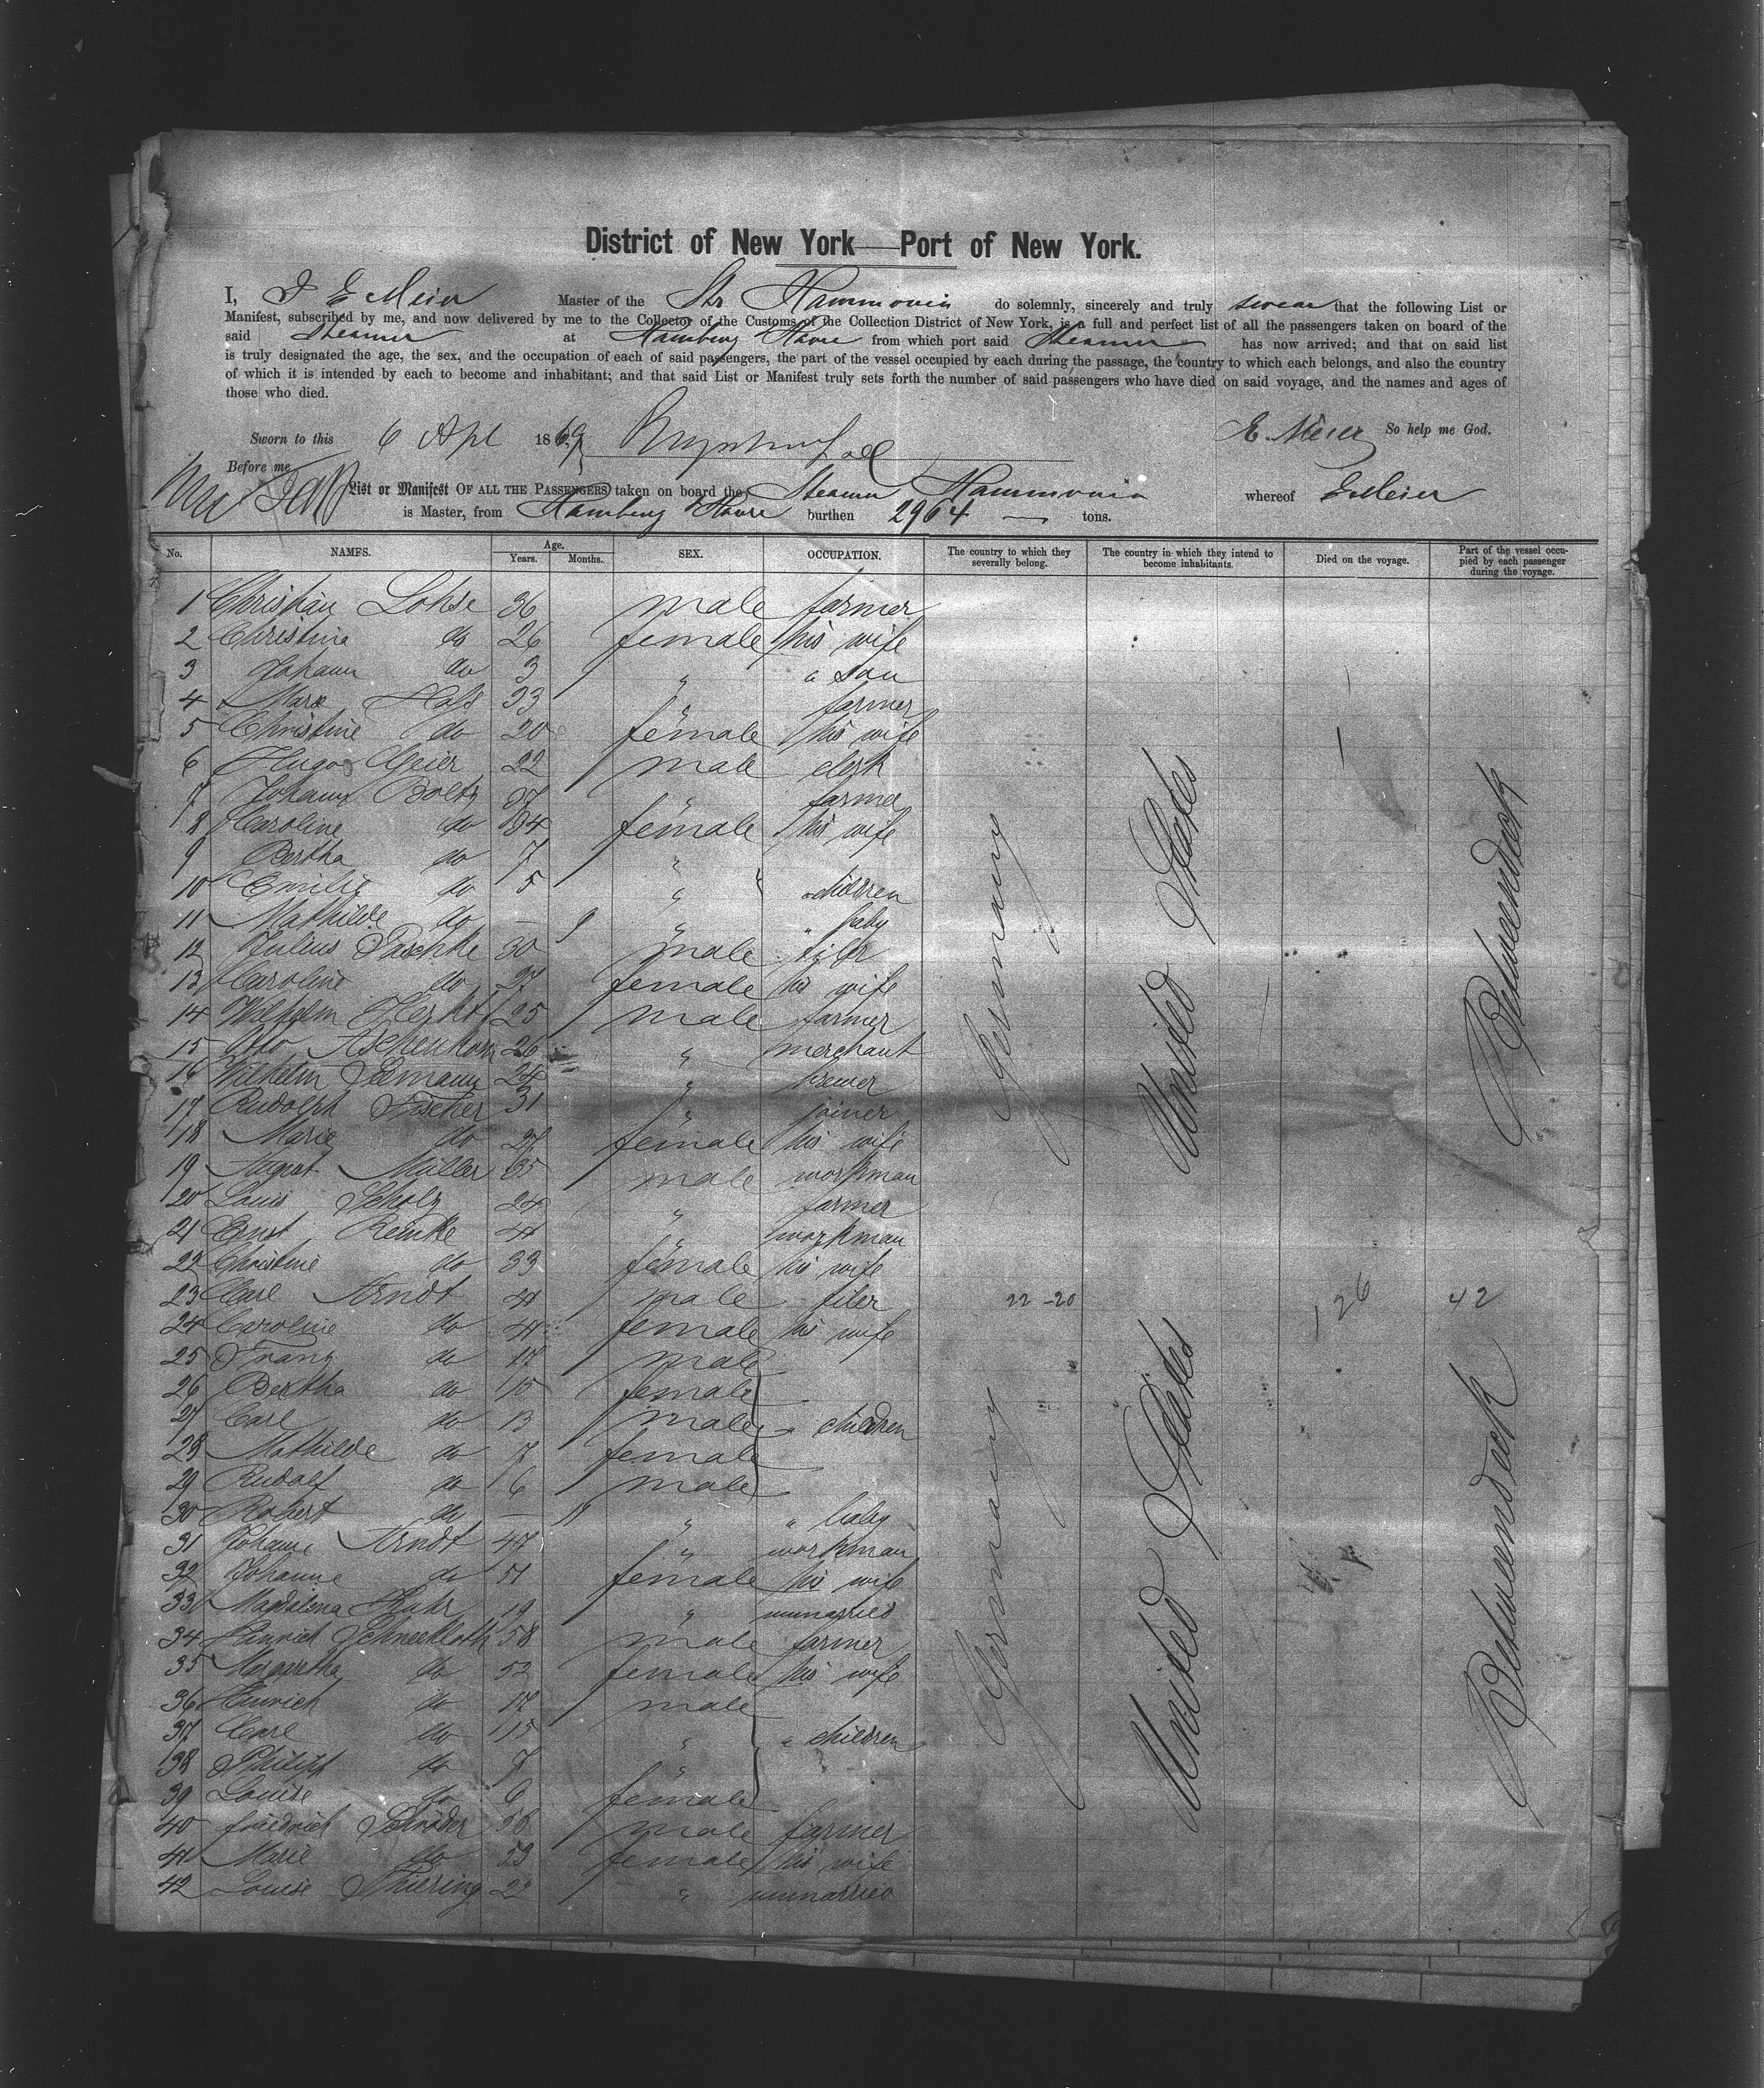 District of New York—Port of New York.
I, E Meier Master of the Str Hammonia do solemnly, sincerely and truly swear that the following List or
Manifest, subscribed by me, and now delivered by me to the Collector of the Customs of the Collection District of New York, is a full and perfect list of all the passengers taken on board of the
said Steamer at Hamburg Havre from which port said Steamer has now arrived; and that on said list
is truly designated the age, the sex, and the occupation of each of said passengers, the part of the vessel occupied by each during the passage, the country to which each belongs, and also the country
of which it is intended by each to become and inhabitant; and that said List or Manifest truly sets forth the number of said passengers who have died on said voyage, and the names and ages of
those who died.
Sworn to this 6 Apl 1869 E. Meier So help me God.
Before me
List or Manifest OF ALL THE PASSENGERS taken on board the Steamer Hammonia whereof E Meier
is Master, from Hamburg Havre burthen 2964 — tons.
No. NAMES. Age. Years. Months. SEX. OCCUPATION. The country to which they severally belong. The country in which they intend to become inhabitants. Died on the voyage. Part of the vessel occupied by each passenger during the voyage.
1 Christian Lohse 36 male farmer
2 Christina do 26 female his wife
3 Johann do 3 " a son
4 Marx Hass 33 " farmer
5 Christine do 20 female his wife
6 Hugo Meier 22 male clerk
7 Johann Boltz 37 " farmer
8 Caroline do 34 female his wife
9 Bertha do 7 "
10 Emilie do 5 " " children
11 Mathilde do — 9 " " baby
12 Julius Paschke 30 male tiler
13 Caroline do 27 female his wife
14 Wilhelm 25 male farmer
15 Otto Aschenborn 26 " merchant
16 Wilhelm Seemann 24 " brewer
17 Rudolph Fischer 31 " joiner
18 Marie do 27 female his wife
19 August Müller 35 male workman
20 Louis Scholz 24 " farmer
21 Ernst Reinke 41 " workman
22 Christine do 33 female his wife
23 Carl Arndt 41 male tiler
24 Caroline do 41 female his wife
25 Franz do 17 male
26 Bertha do 15 female
27 Carl do 13 male " children
28 Mathilde do 7 female
29 Rudolf do 6 male
30 Robert do — 11 " " baby
31 Johann Arndt 47 " workman
32 Johanne do 51 female his wife
33 Magdalena 19 " unmarried
34 Hinrich Schneekloth 58 male farmer
35 Margaretha do 52 female his wife
36 Hinrich do 17 male
37 Carl do 15 " " children
38 Philipp do 7 "
39 Louise do 6 female
40 Friedrich Schröder 58 male farmer
41 Marie do 53 female his wife
42 Louise Thiering 22 " unmarried
Germany
United States
Betweendeck
22-20
126
42
Germany
United States
Betweendeck